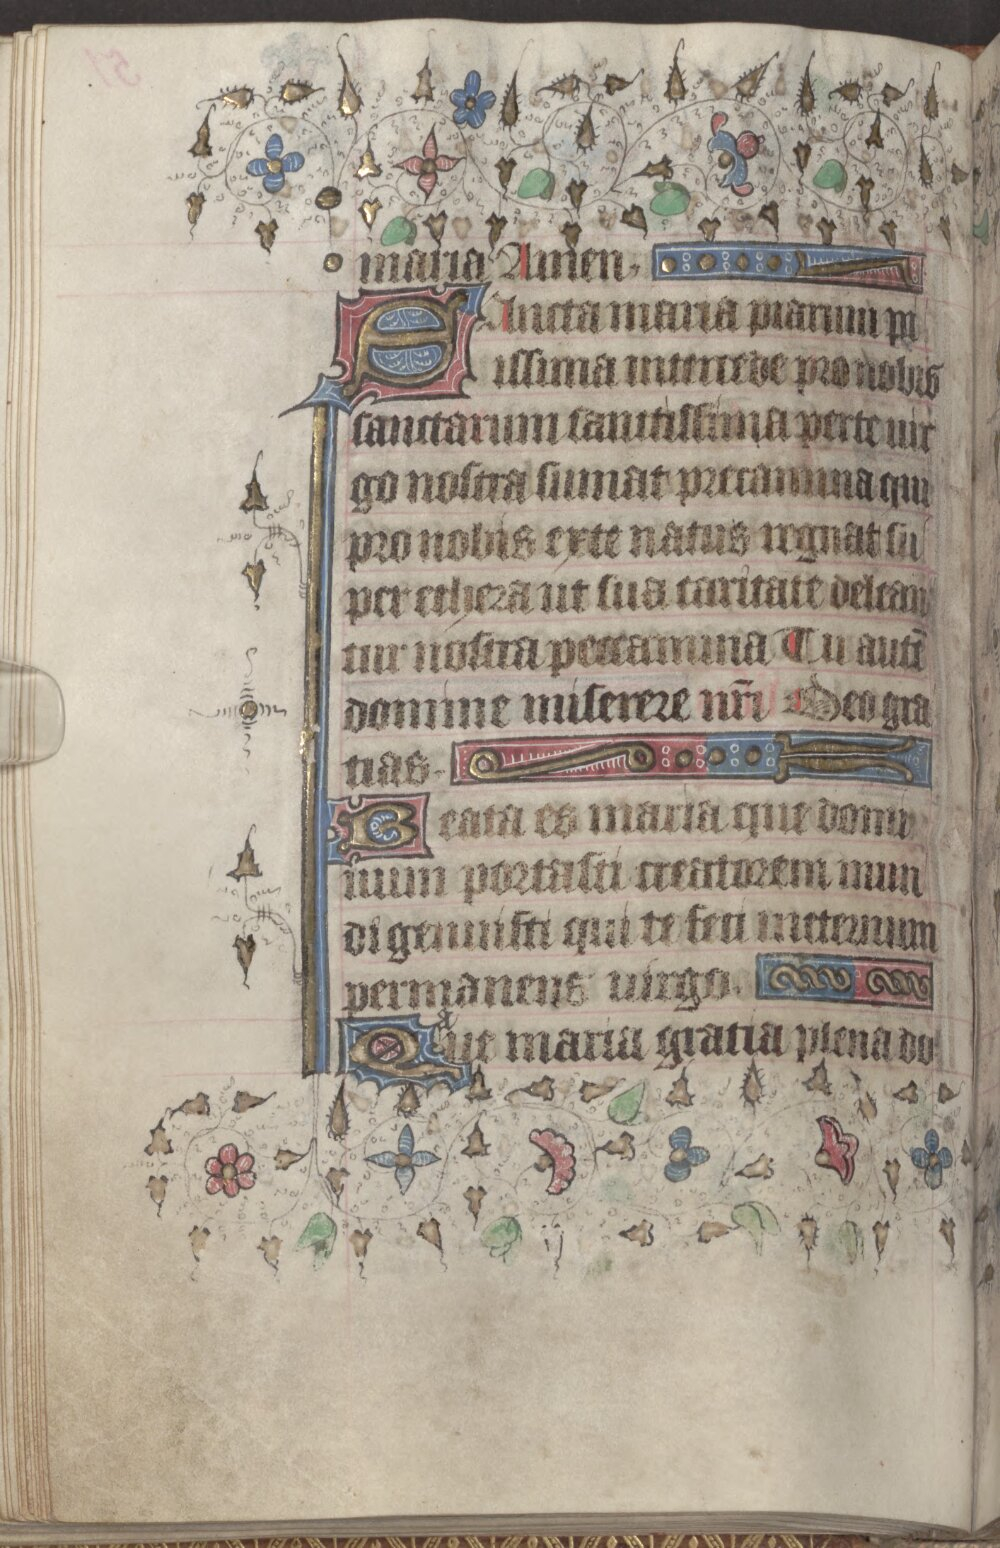 o maria Amen.
Sancta maria piarum pi
issima intercede pro nobis
sanctarum sanctissima per te uir
go nostra sumat precamina qui
pro nobis ex te natus regnat su
per ethera ut sua caritate delean
tur nostra peccamina Tu autē
domine miserere nr̄i Deo gra
tias.
Beata es maria que domi
num portasti creatorem mun
di genuisti qui te feci[t] in eternum
permanens uirgo.
Aue maria gratia plena do